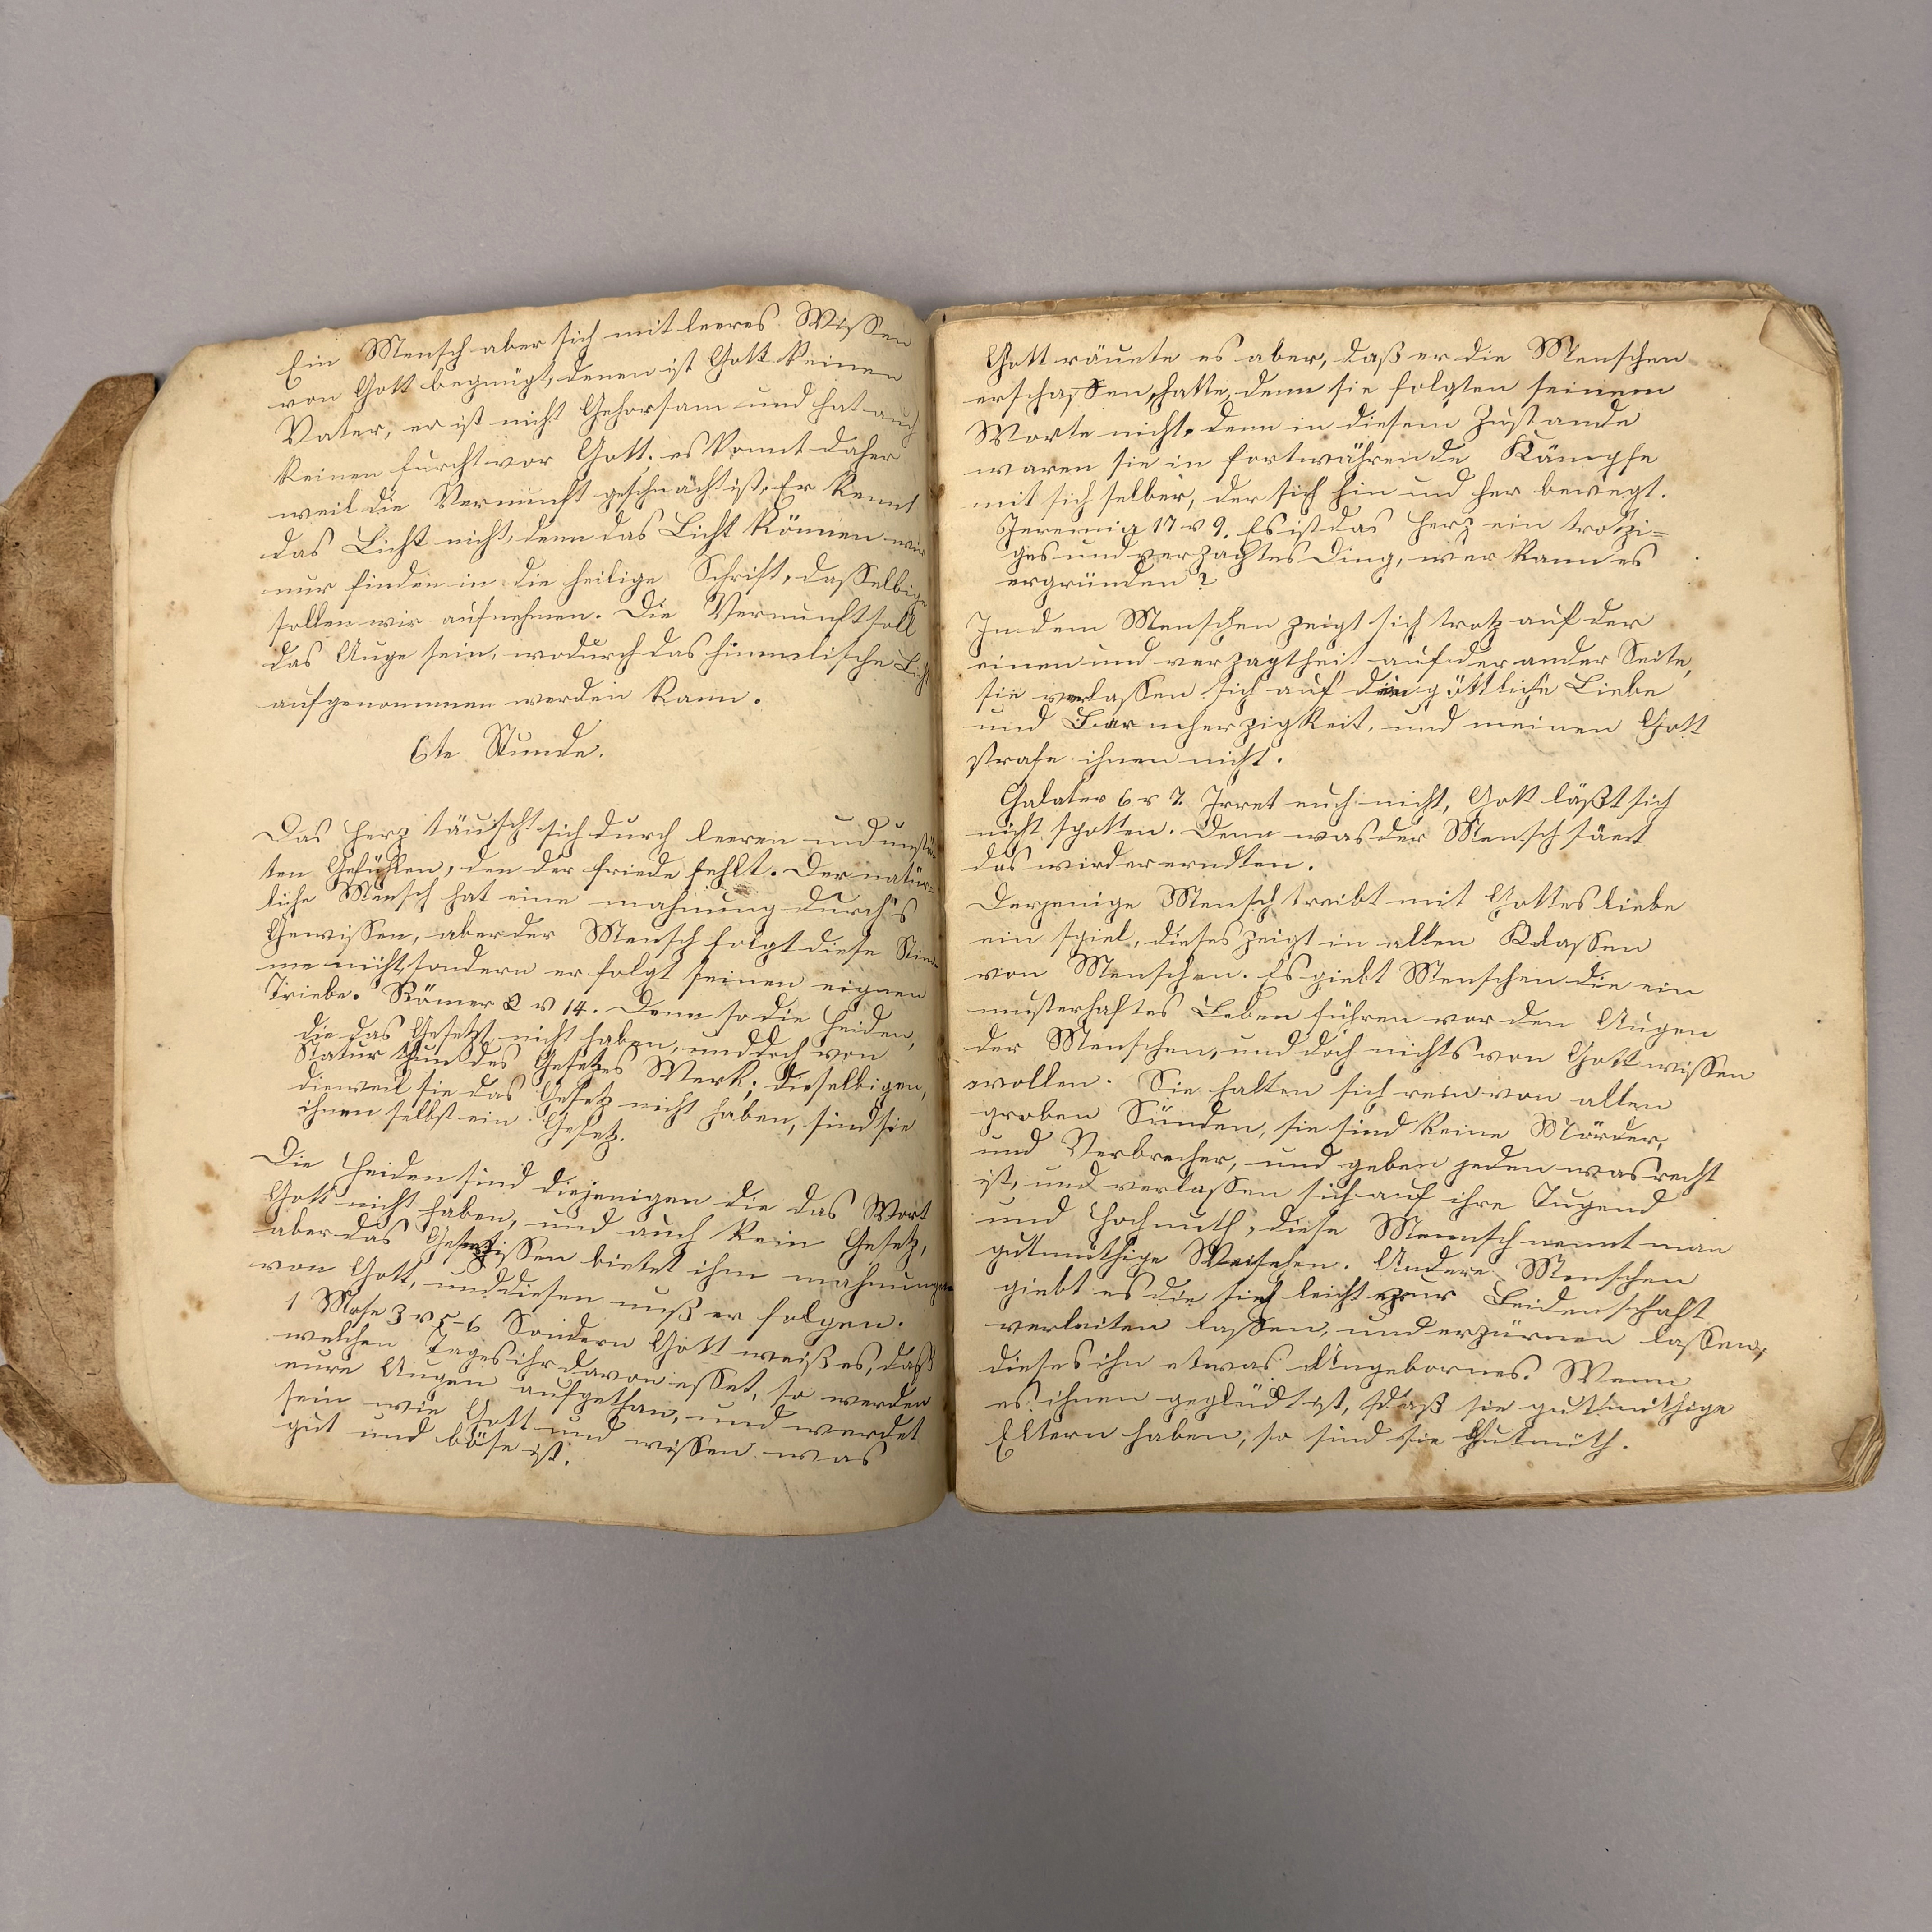 Ein Mensch aber sich mit leeres Wissen
von Gott begnügt, denen ist Gott keinen
Vater, er ist nicht Gehorsam und hat auch
keinen furcht vor Gott. es komt daher
weil die Vernunft geschwächt ist. Er kennt
das Licht nicht, denn das Licht können wir
nur finden in die heilige Schrift, dasselbige
sollen wir aufnehmen. Die Vernunft soll
das Auge sein, wodurch das himmelische Licht
aufgenommen werden kann.
6te Stunde.
Das Herz täuscht sich durch leeren und unstä-
ten Gefühlen, den der friede fehlt. Der natür=
liche Mensch hat eine mahnung durch's
Gewissen, aber der Mensch folgt diese Stim-
me nicht, sondern er folgt seinen eignen
Triebe. Römer 2 v 14. Denn so die Heiden,
die das Gesetz nicht haben, und doch von
Natur thun des Gesetzes Werk; dieselbigen,
dieweil sie das Gesetz nicht haben, sind sie
ihnen selbst ein Gesetz.
Die Heiden sind diejenigen die das Wort
Gott nicht haben, und auch kein Gesetz,
aber das Gewissen bietet ihm mahnungen
von Gott, und diesen muß er folgen.
1 Mose 3 v 5-6 Sondern Gott weiß es, daß
welchen Tages ihr davon esset, so werden
eure Augen aufgethan, und werdet
sein wie Gott und wissen was
gut und böse ist.
Gott räuete es aber, daß er die Menschen
erschaffen hatte, denn sie folgten seinem
Worte nicht, denn in diesem Zustande
waren sie in fortwährende Kämpfe
mit sich selber, der sich hin und her bewegt.
Jeremia 17 v 9. Es ist das Herz ein trotzi=
ges und verzachtes Ding, wer kann es
ergründen?
In dem Menschen zeigt sich trotz auf der
einen und verzagtheit auf der ander Seite,
sie verlassen sich auf die göttliche Liebe
und Barmherzigkeit, und meinen Gott
strafe ihnen nicht.
Galater 6 v 7. Irret euch nicht, Gott läßt sich
nicht spotten. Denn was der Mensch säet
das wird er erndten.
Derjenige Mensch treibt mit Gottes Liebe
ein spiel, dieses zeigt in allen Klassen
von Menschen. Es giebt Menschen die ein
musterhaftes Leben führen vor den Augen
der Menschen, und doch nichts von Gott wissen
wollen. Sie halten sich rein von allen
groben Sünden, sie sind keine Mörder,
und Verbrecher, und geben jeden was recht
ist, und verlassen sich auf ihre Tugend
und Hochmuth, diese Mensch nennt man
gutmüthige Menschen. Andere Menschen
giebt es die sich leicht zur Leidenschaft
verleiten lassen, und erzürnen lassen,
dieses ihn etwas Angebornes. Wenn
es ihnen geglückt ist, daß sie gutmüthige
Eltern haben, so sind sie Gutmüth.